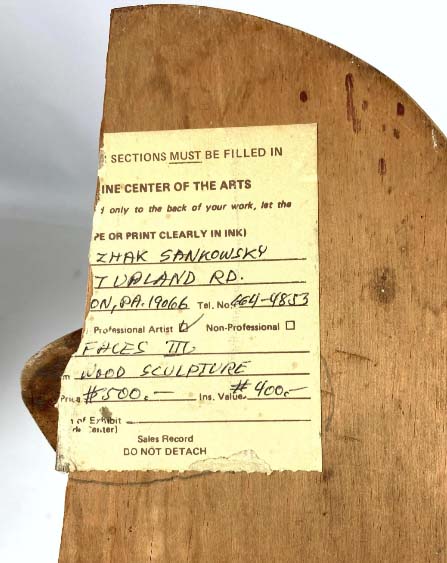 SECTIONS MUST BE FILLED IN
INE CENTER OF THE ARTS
only to the back of your work, let the
PE OR PRINT CLEARLY IN INK)
ZHAK SANKOWSKY
TUPLAND RD.
ON, PA. 19066 Tel. No. 664-4853
Professional Artist ☑ Non-Professional ☐
FACES III
m WOOD SCULPTURE
Price $500.— Ins. Value $400.—
of Exhibit
Center)
Sales Record
DO NOT DETACH